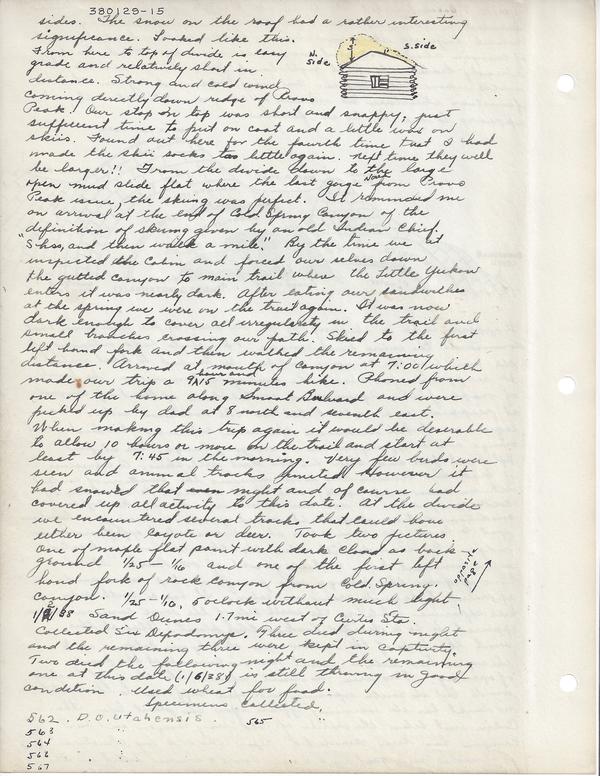 380129-15
sides. The snow on the roof had a rather interesting
significance. Looked like this.
N. side
S. side
From here to top of divide is easy
grade and relatively short in
distance. Strong and cold wind
coming directly down ridge of Provo
Peak. Our stop on top was short and snappy; just
sufficient time to put on coat and a little wax on
skiis. Found out here for the fourth time that I had
made the skii socks too little again. next time they will
be larger!! From the divide down to the large
open mud slide flat where the last gorge from Provo
Peak issue, the skiing was perfect. It reminded me
on arrival at the end of Cold Spring Canyon of the
definition of skiing given by an old Indian Chief.
and then walk a mile." By the time we
inspected the Cabin and forced our selves down
the gutted canyon to main trail where the Little Yukon
enters it was nearly dark. After eating our sandwiches
at the spring we were on the trail again. It was now
dark enough to cover all irregularity in the trail and
small branches crossing our path. Skied to the first
left hand fork and then walked the remaining
distance. Arrived at mouth of canyon at 7:00 which
made our trip a 9 hour and 15 minutes hike. Phoned from
one of the home along Smoot Boulevard and were
picked up by dad at 8 north and seventh east.
When making this trip again it would be desirable
to allow 10 hours or more on the trail and start at
least by 7:45 in the morning. Very few birds were
seen and animal tracks limited. However it
had snowed that night and of course had
covered up all activity to this date. At the divide
we encountered several tracks that could have
either been coyote or deer. Took two pictures
one of maple flat point with dark cloud as back
ground 1/25 - 1/16 and one of the first left
hand fork of rock canyon from Cold Spring
canyon. 1/25 - 1/10, 5 oclock without much light
opposite page
Sand Dunes 1.7 mi west of Curtis Sta.
Collected Six Dipodomys. Three died during night
and the remaining three were kept in captivity.
Two died the following night and the remaining
one at this date (1/6/38) is still thriving in good
condition. Used wheat for food.
Specimens collected,
562. D.O. Utahensis. 565
563 "
564 "
566 "
567